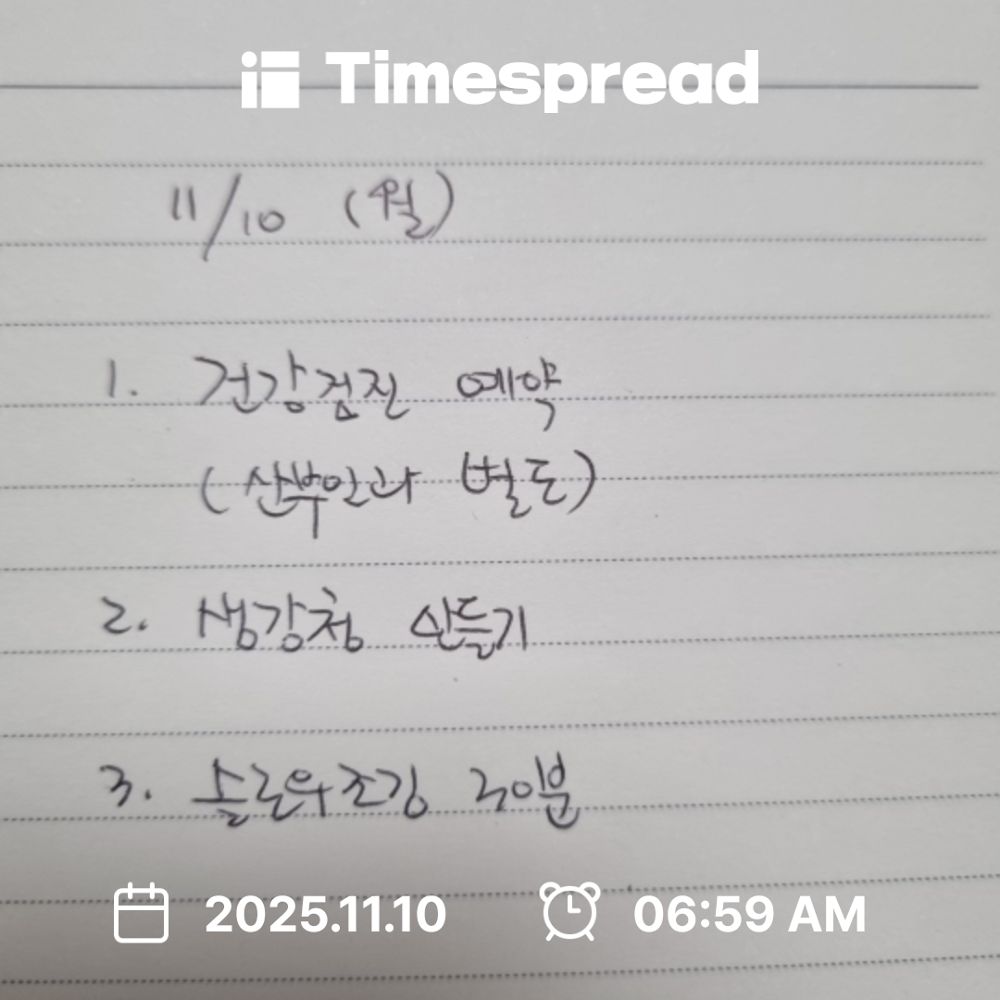 Timespread
11/10 (월)
1. 건강검진 예약
(산부인과 별도)
2. 생강청 만들기
3. 슬로우조깅 30분
2025.11.10 06:59 AM